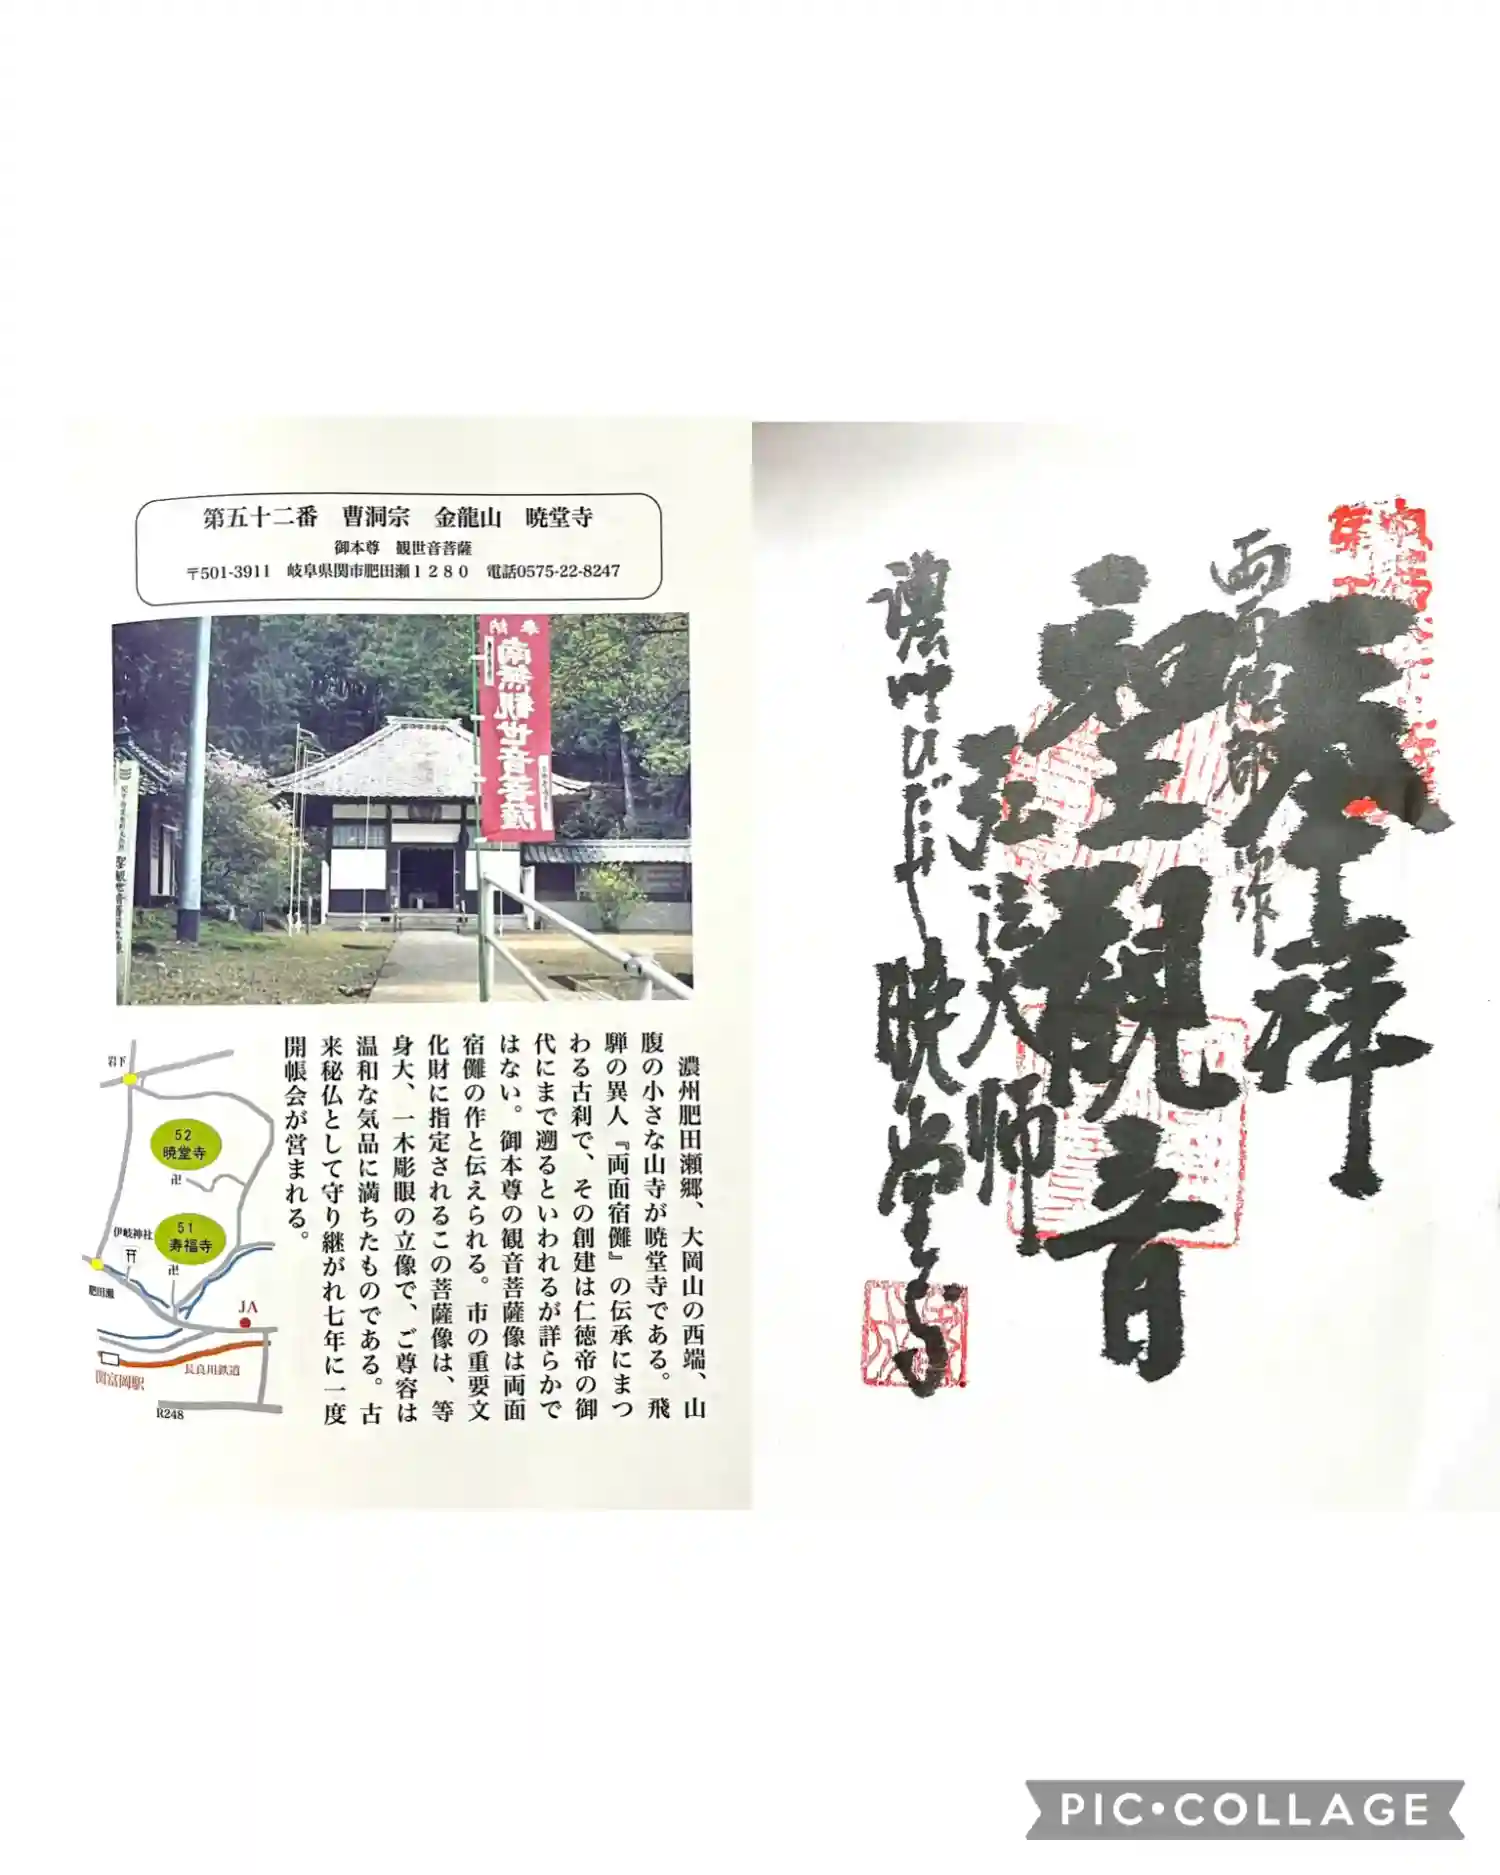 第五十二番　曹洞宗　金龍山　暁堂寺
御本尊　観世音菩薩
〒501-3911　岐阜県関市肥田瀬１２８０　電話0575-22-8247
奉納
南無観世音菩薩
濃州肥田瀬郷、大岡山の西端、山
腹の小さな山寺が暁堂寺である。飛
騨の異人『両面宿儺』の伝承にまつ
わる古刹で、その創建は仁徳帝の御
代にまで遡るといわれるが詳らかで
はない。御本尊の観音菩薩像は両面
宿儺の作と伝えられる。市の重要文
化財に指定されるこの菩薩像は、等
身大、一木彫眼の立像で、ご尊容は
温和な気品に満ちたものである。古
来秘仏として守り継がれ七年に一度
開帳会が営まれる。
岩下
52
暁堂寺
卍
51
寿福寺
卍
伊岐神社
肥田瀬
JA
長良川鉄道
関富岡駅
R248
拝
聖観音
弘法大師
暁堂寺
PIC•COLLAGE